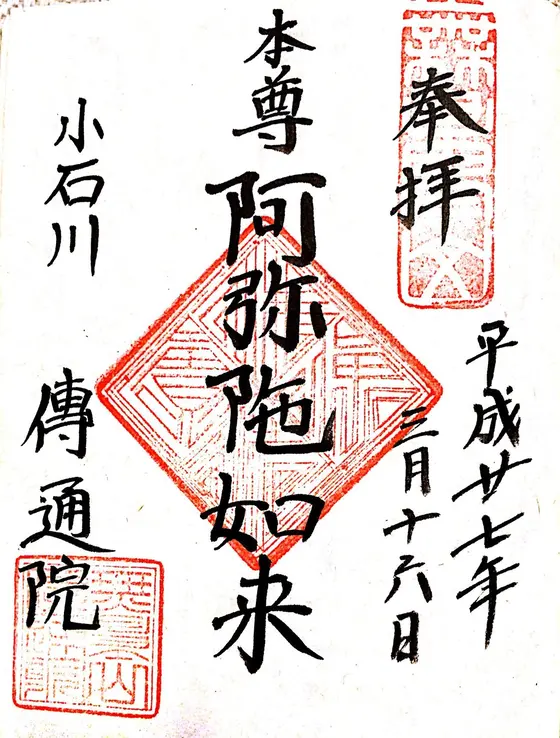 奉拝
平成廿七年
三月十六日
本尊
阿弥陀如来
小石川
傳通院